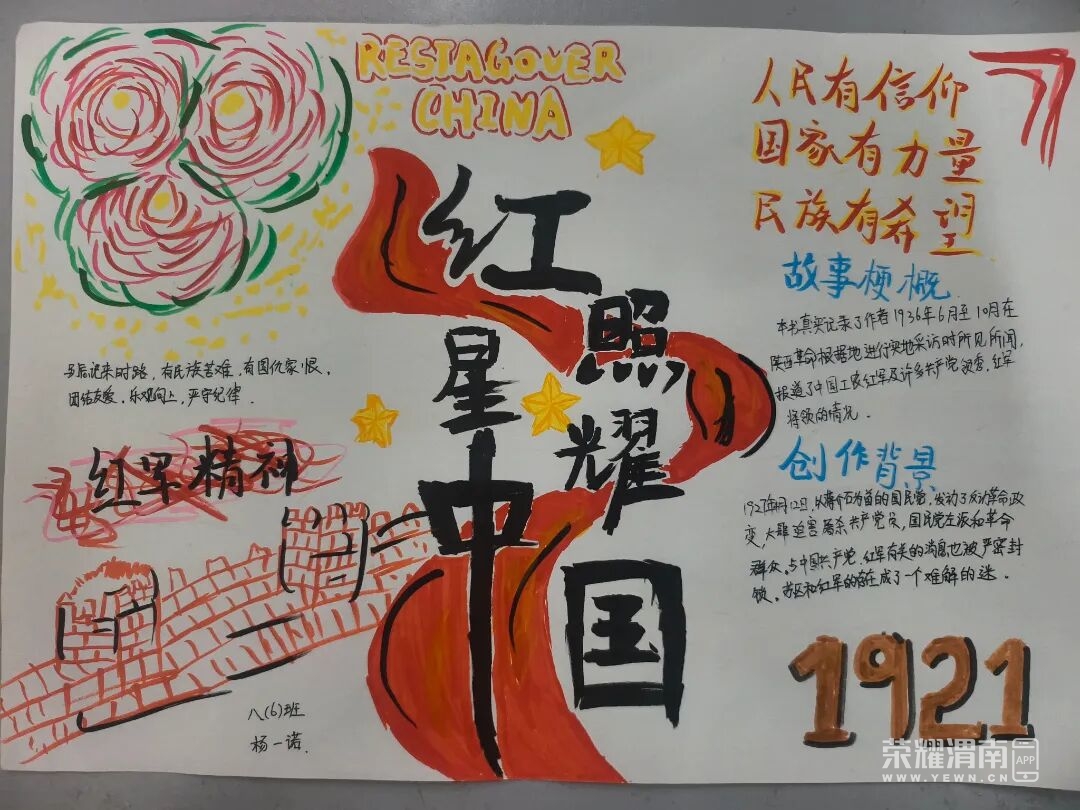 RESTAGOVER
CHINA
红星照耀中国
人民有信仰
国家有力量
民族有希望
故事梗概
本书真实记录了作者1936年6月至10月在
陕西革命根据地进行实地采访时所见所闻,
报道了中国工农红军及许多共产党领袖、红军
将领的情况.
创作背景
1927年月12日,以蒋介石为首的国民党,发动了反动革命政
变,大肆迫害屠杀共产党员,国民党左派和革命
群众、与中国共产党、红军有关的消息也被严密封
锁、苏区和红军的存在成了一个难解的迷.
1921
记来时路,有民族苦难,有国仇家恨,
团结友爱,乐观向上,严守纪律.
红军精神
八(6)班
杨一诺.
荣耀渭南
APP
WWW.YEWN.CN